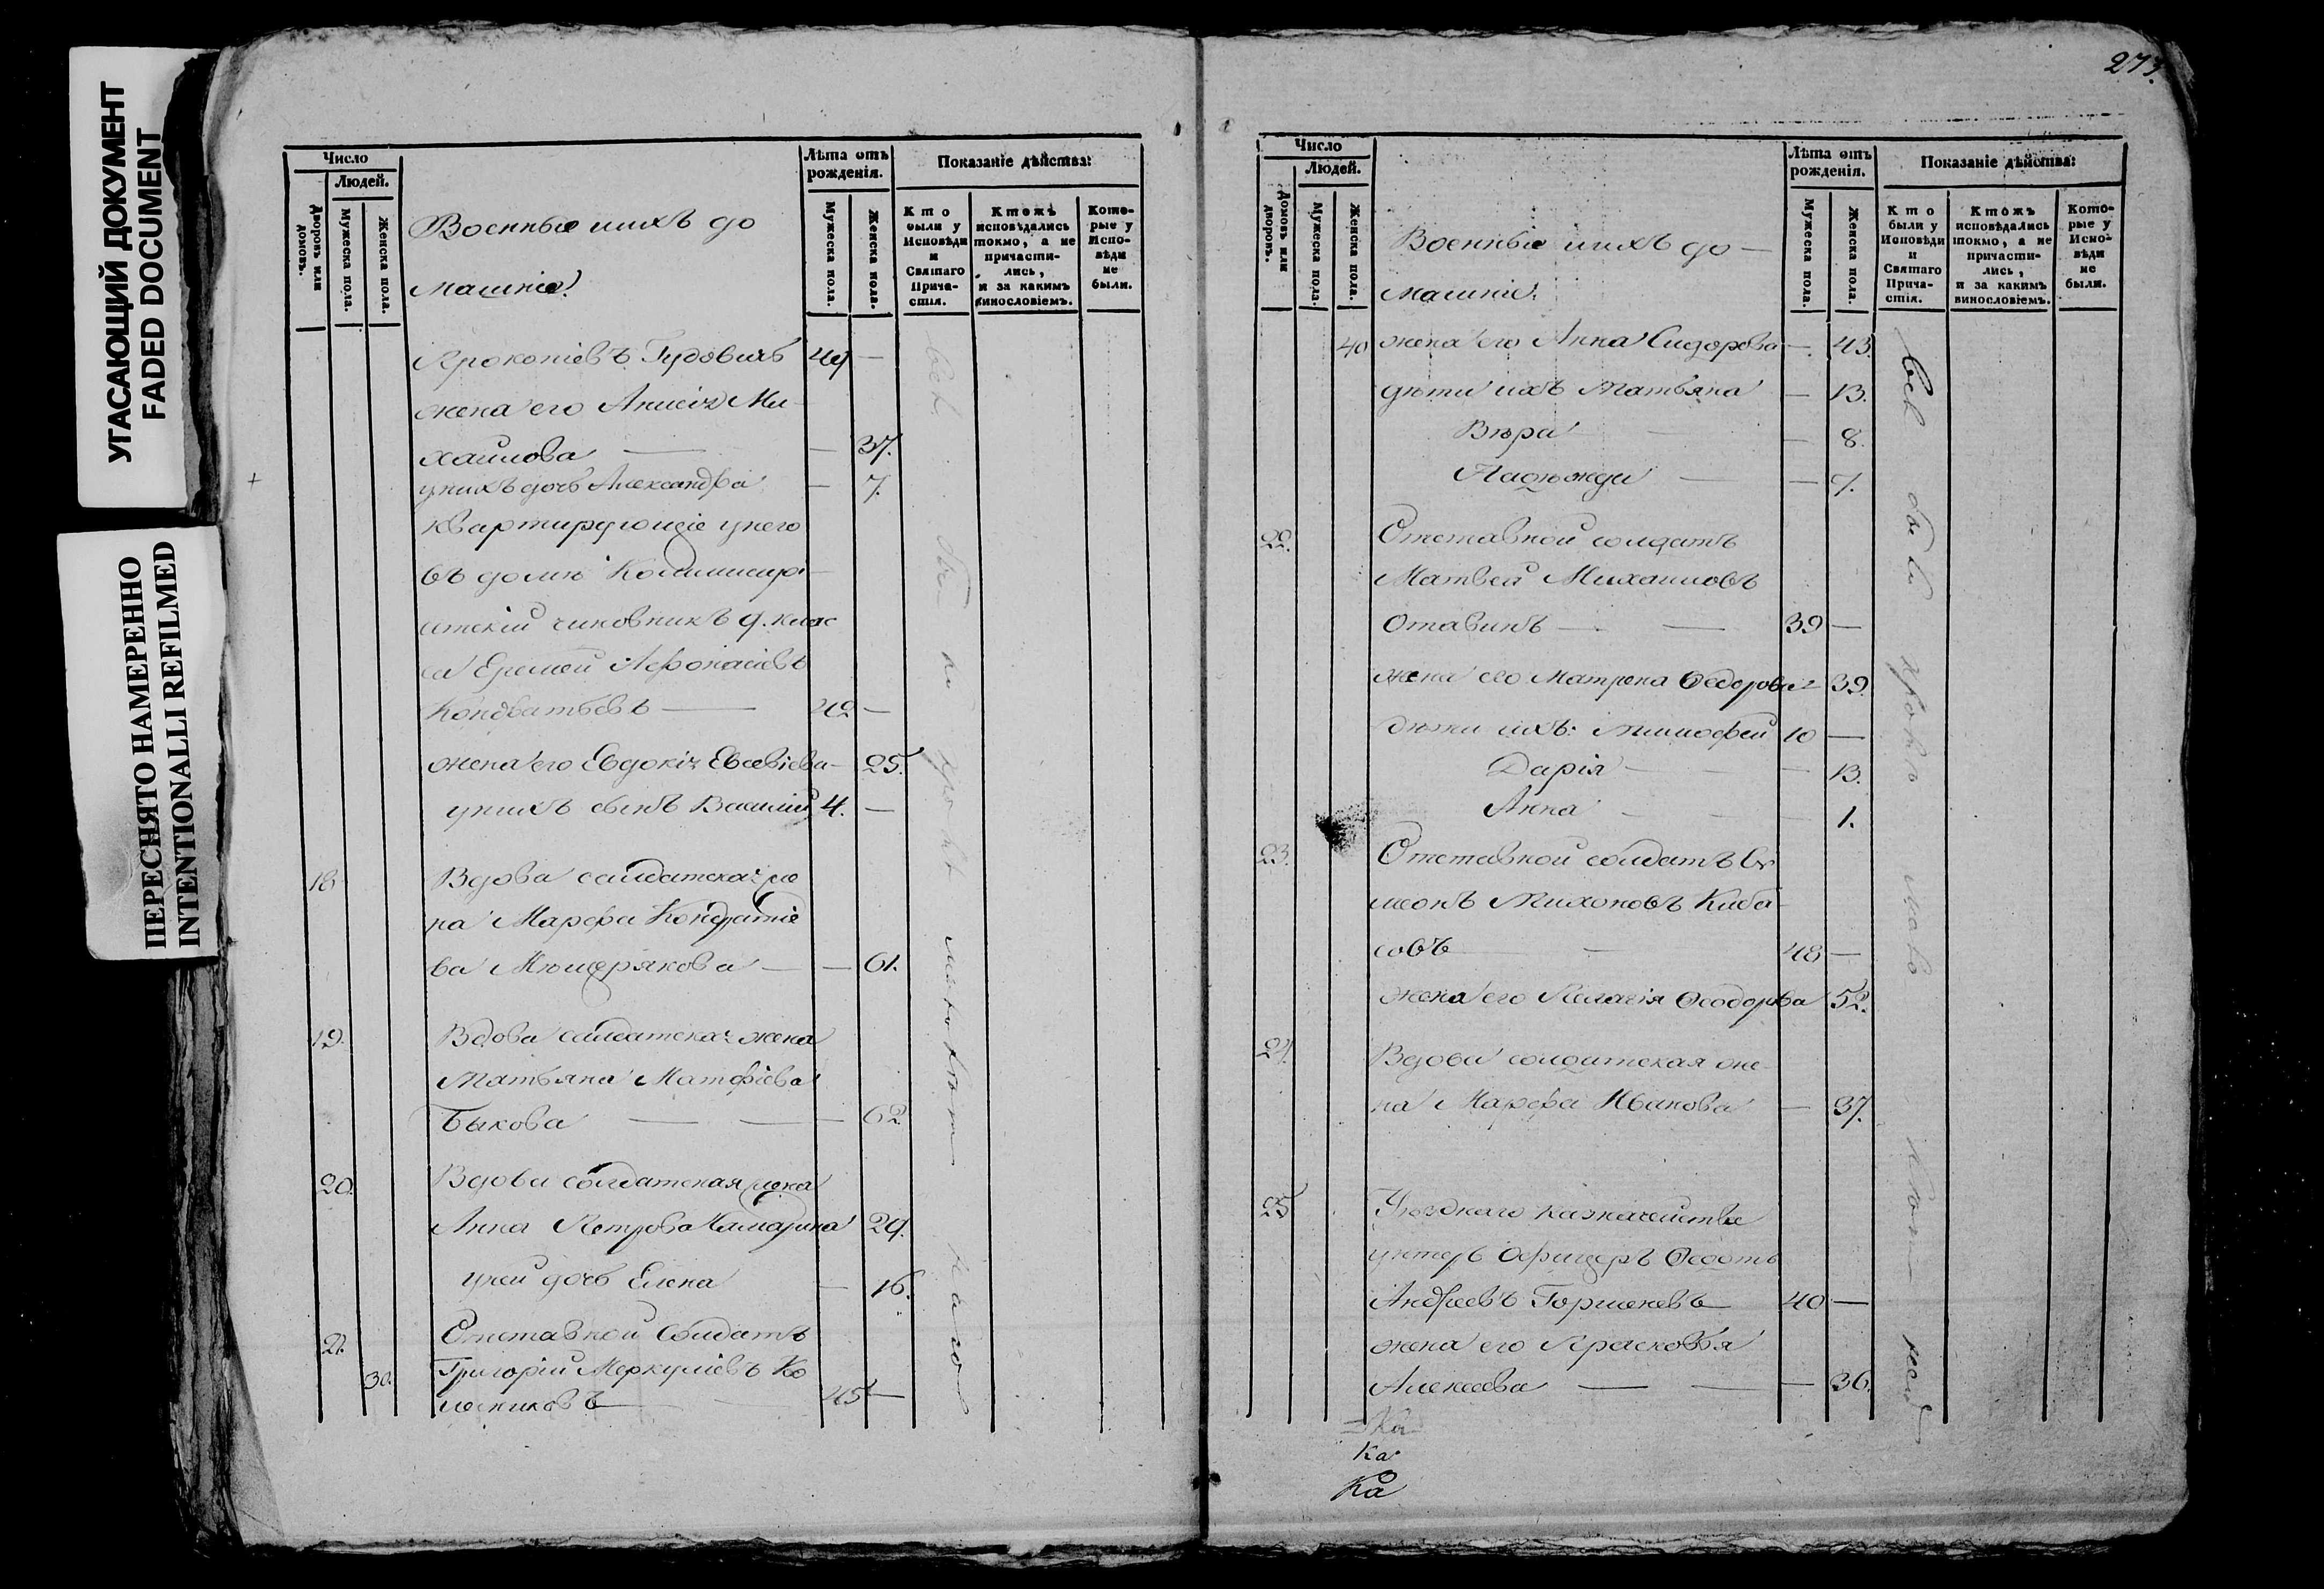 УГАСАЮЩИЙ ДОКУМЕНТ
FADED DOCUMENT
ПЕРЕСНЯТО НАМЕРЕННО
INTENTIONALLI REFILMED
Число
Людей.
Дворовъ или домовъ.
Мужеска пола.
Женска пола.
Военные и ихъ до
машніе.
Лѣта отъ рожденія.
Мужеска пола.
Женска пола.
Показаніе дѣйства:
Кто были у Исповѣди и Святаго Прича-стія.
Ктожъ исповѣдались токмо, а не причасти-лись, и за какимъ винословіемъ.
Кото-рые у Испо-вѣди не были.
Прокопіевъ 49 —
жена его Анисія Ми-
хаилова — — 37.
у нихъ дочь Александра — 7.
Квартирующіе у него
въ домѣ Коммисарі-
атскій чиновникъ 9. клас
са Еремей Афонасіевъ
Кондратьевъ — 42 —
жена его Евдокія Евсевіева — 25.
у нихъ сынъ Василій 4. —
18 Вдова солдатская же
на Марфа Кондратіе
ва Мещерякова — — 61.
19. Вдова солдатская жена
Татьяна Матфіева
Быкова — — — 62
20. Вдова солдатская жена
Анна Петрова 29.
у ней дочь Елена — 16.
21. Отставной солдатъ
30. Григорій Меркуліевъ Ко
лесниковъ — 45 —
273.
Число
Людей.
Домовъ или дворовъ.
Мужеска пола.
Женска пола.
Военные и ихъ до —
машніе.
Лѣта отъ рожденія.
Мужеска пола.
Женска пола.
Показаніе дѣйства:
Кто были у Исповѣди и Святаго Прича-стія.
Ктожъ исповѣдались токмо, а не причасти-лись, и за какимъ винословіемъ.
Кото-рые у Испо-вѣди не были.
40 жена его Анна Сидорова — 43.
дѣти ихъ Татьяна — 13.
Вѣра — — 8.
Надежда — — 7.
22. Отставной солдатъ
Матвей Михаиловъ
— — 39 —
жена его Матрена Ѳедорова — 39.
дѣти ихъ: Тимофей 10 —
Дарія — — — 13.
Анна — — 1.
23. Отставной солдатъ Си
меонъ Тихоновъ Киба
совъ — 48 —
жена его Пелагія Ѳеодорова 52.
24. Вдова солдатская же
на Марфа Иванова — 37.
25 Уѣзднаго казначейства
унтеръ офицеръ Ѳедотъ
Андреевъ Горшеневъ 40 —
жена его Прасковья
Алексеева — — — 36.
Ка
Ка
Ка